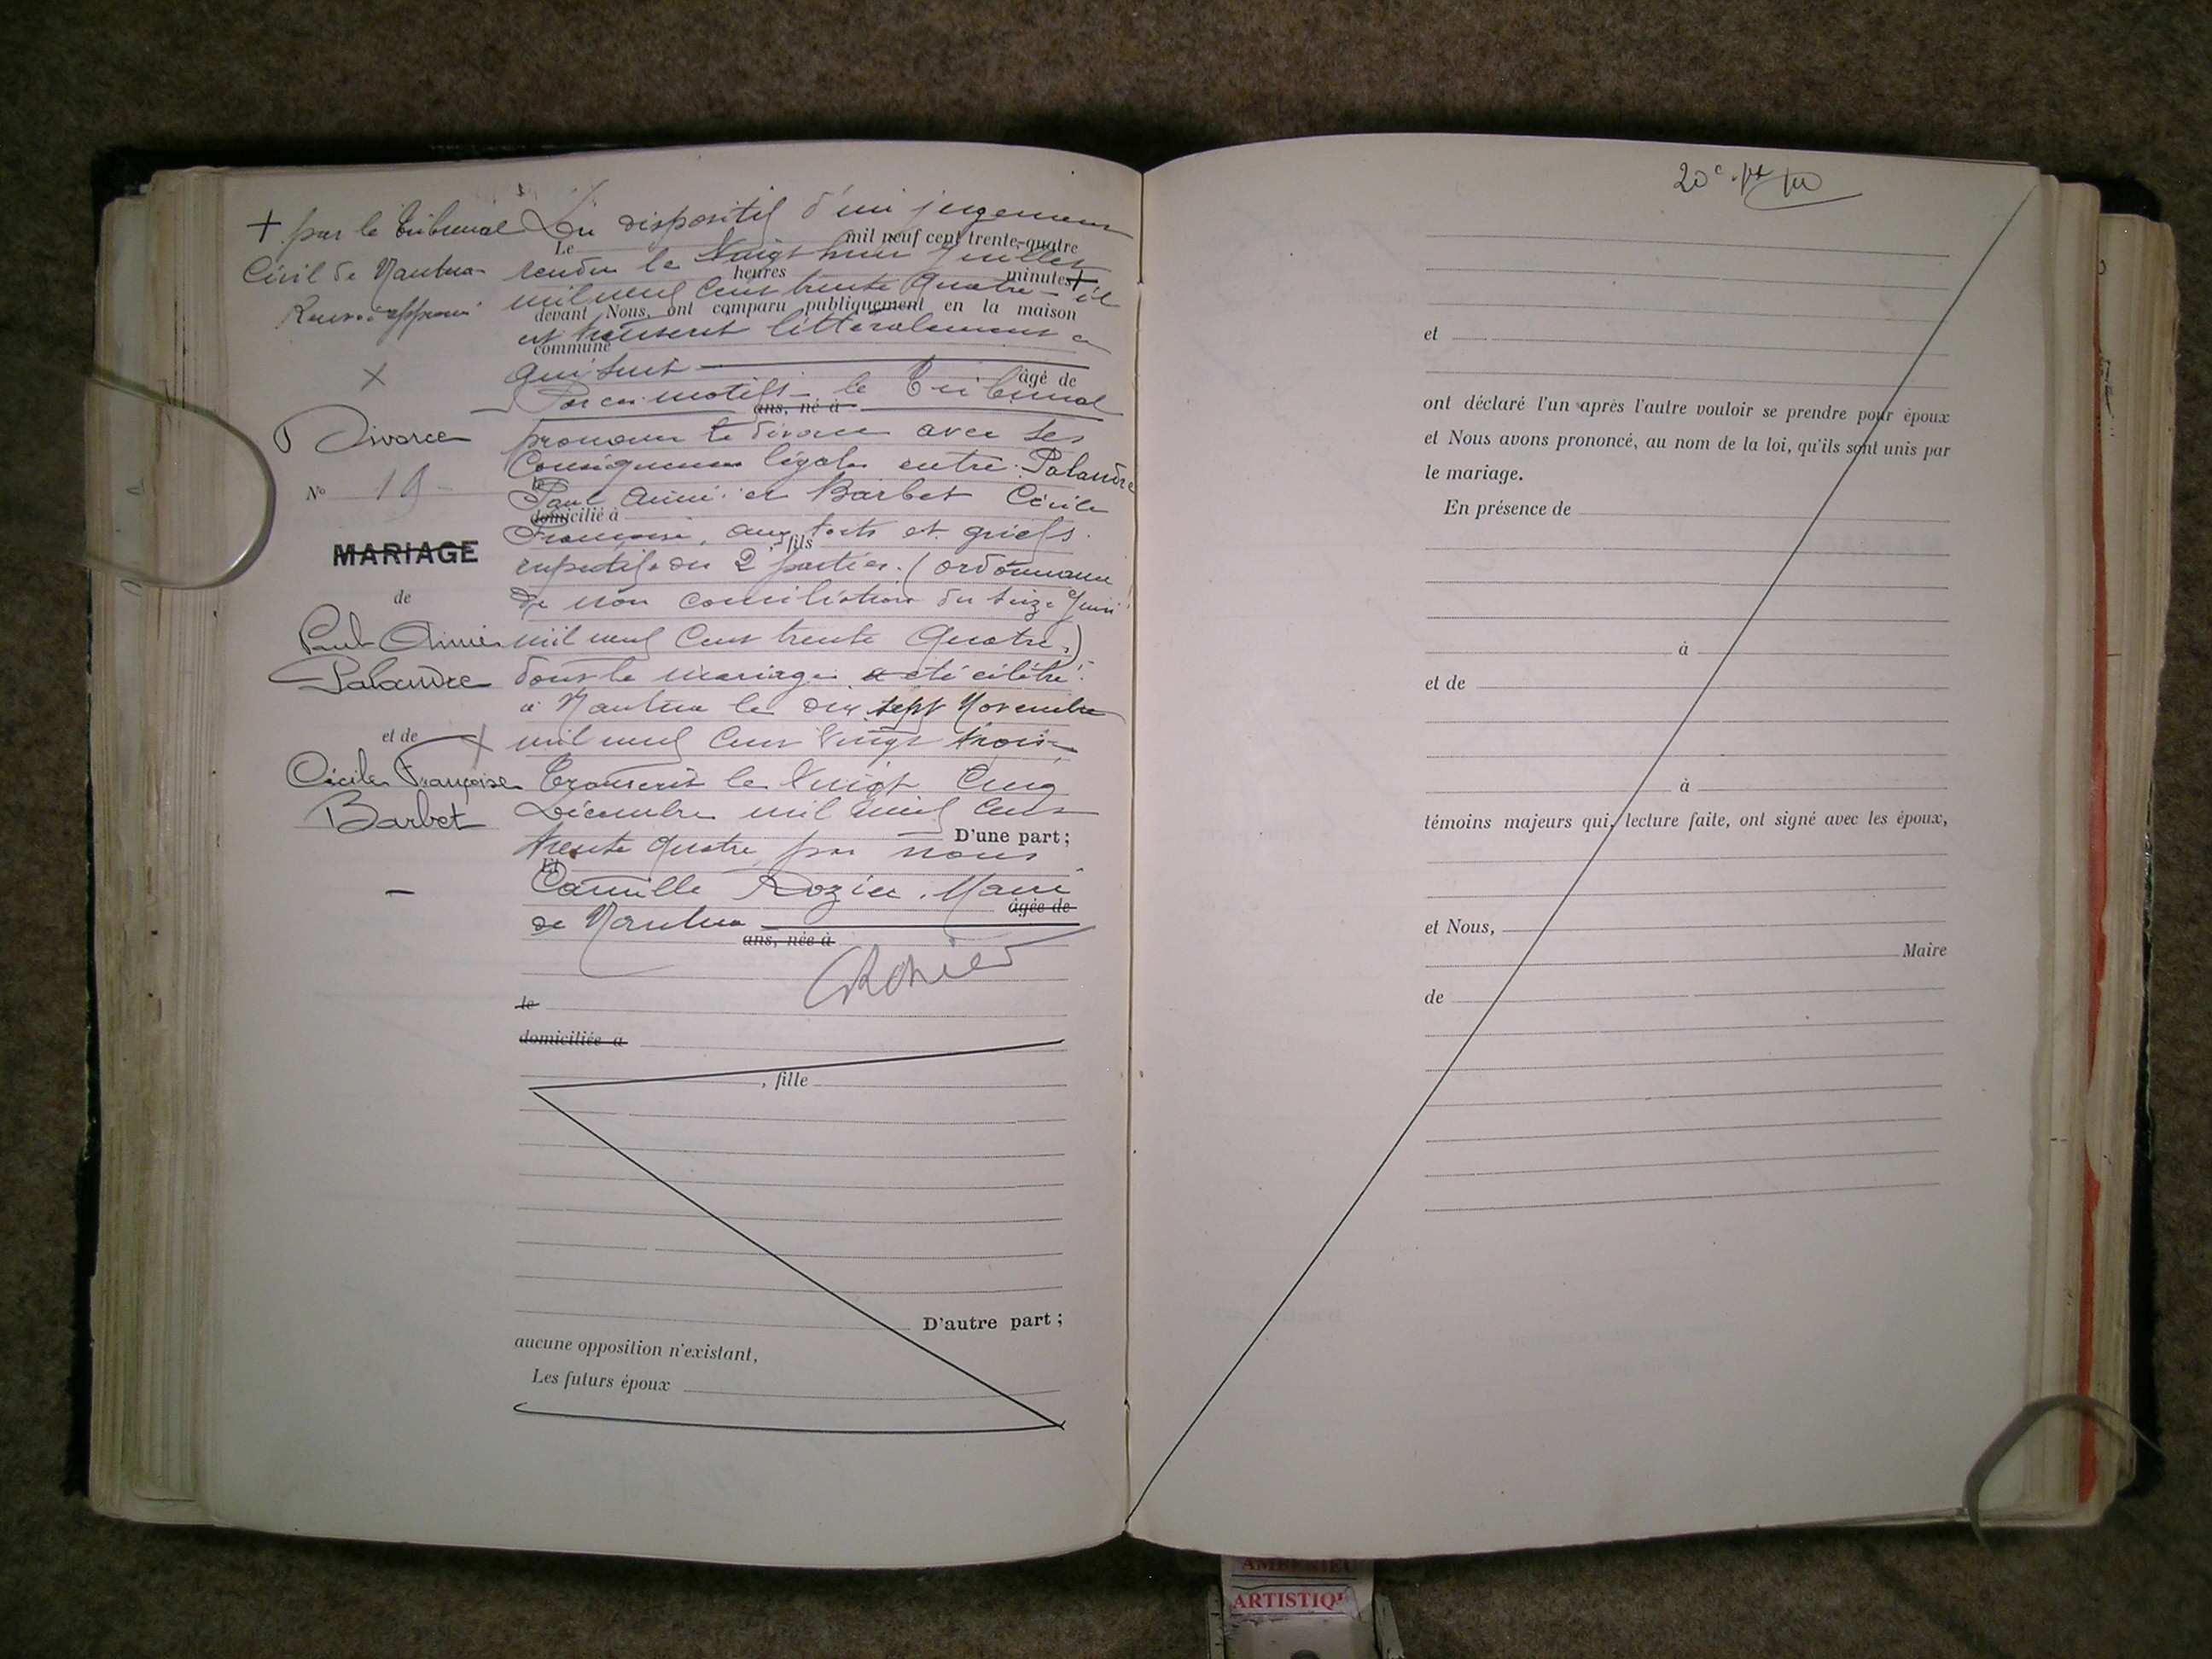 + par le Tribunal
Civil de Nantua
Renvoi approuvé
×
Divorce
N° 19
MARIAGE
de
Paul Aimé
Palandre
et de
Cécile Françoise
Barbet
Du dispositif d'un jugement
Le mil neuf cent trente-quatre
rendu le Vingt huit Juillet
heures minutes +
mil neuf cent trente quatre - il
devant Nous, ont comparu publiquement en la maison
est transcrit littéralement ce
commune
qui suit
âgé de
Par ces motifs - le Tribunal
ans, né à
prononce le divorce avec ses
Conséquences légales entre Palandre
le
Paul Aimé et Barbet Cécile
domicilié à
Françoise, aux torts et griefs
fils
respectifs des 2 parties. (ordonnance
de non conciliation du seize Juin
mil neuf cent trente quatre.)
dont le mariage a été célébré
à Nantua le dix sept Novembre
mil neuf cent vingt trois
Transcrit le Vingt Cinq
Décembre mil neuf cent
D'une part ;
trente quatre par nous
Et
Camille Rozier, Maire
âgée de
de Nantua
ans, née à
CRozier
le
domiciliée à
, fille
D'autre part ;
aucune opposition n'existant,
Les futurs époux
20e
et
ont déclaré l'un après l'autre vouloir se prendre pour époux
et Nous avons prononcé, au nom de la loi, qu'ils sont unis par
le mariage.
En présence de
à
et de
à
témoins majeurs qui, lecture faite, ont signé avec les époux,
et Nous,
Maire
de
ARTISTIQ